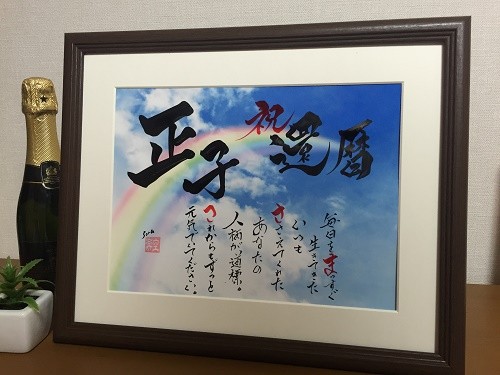 正子
祝
還暦
毎日をまっすぐ
生きてきた
いつも
ささえてくれた
あなたの
人柄が道標。
これからもずっと
元気でいてください。